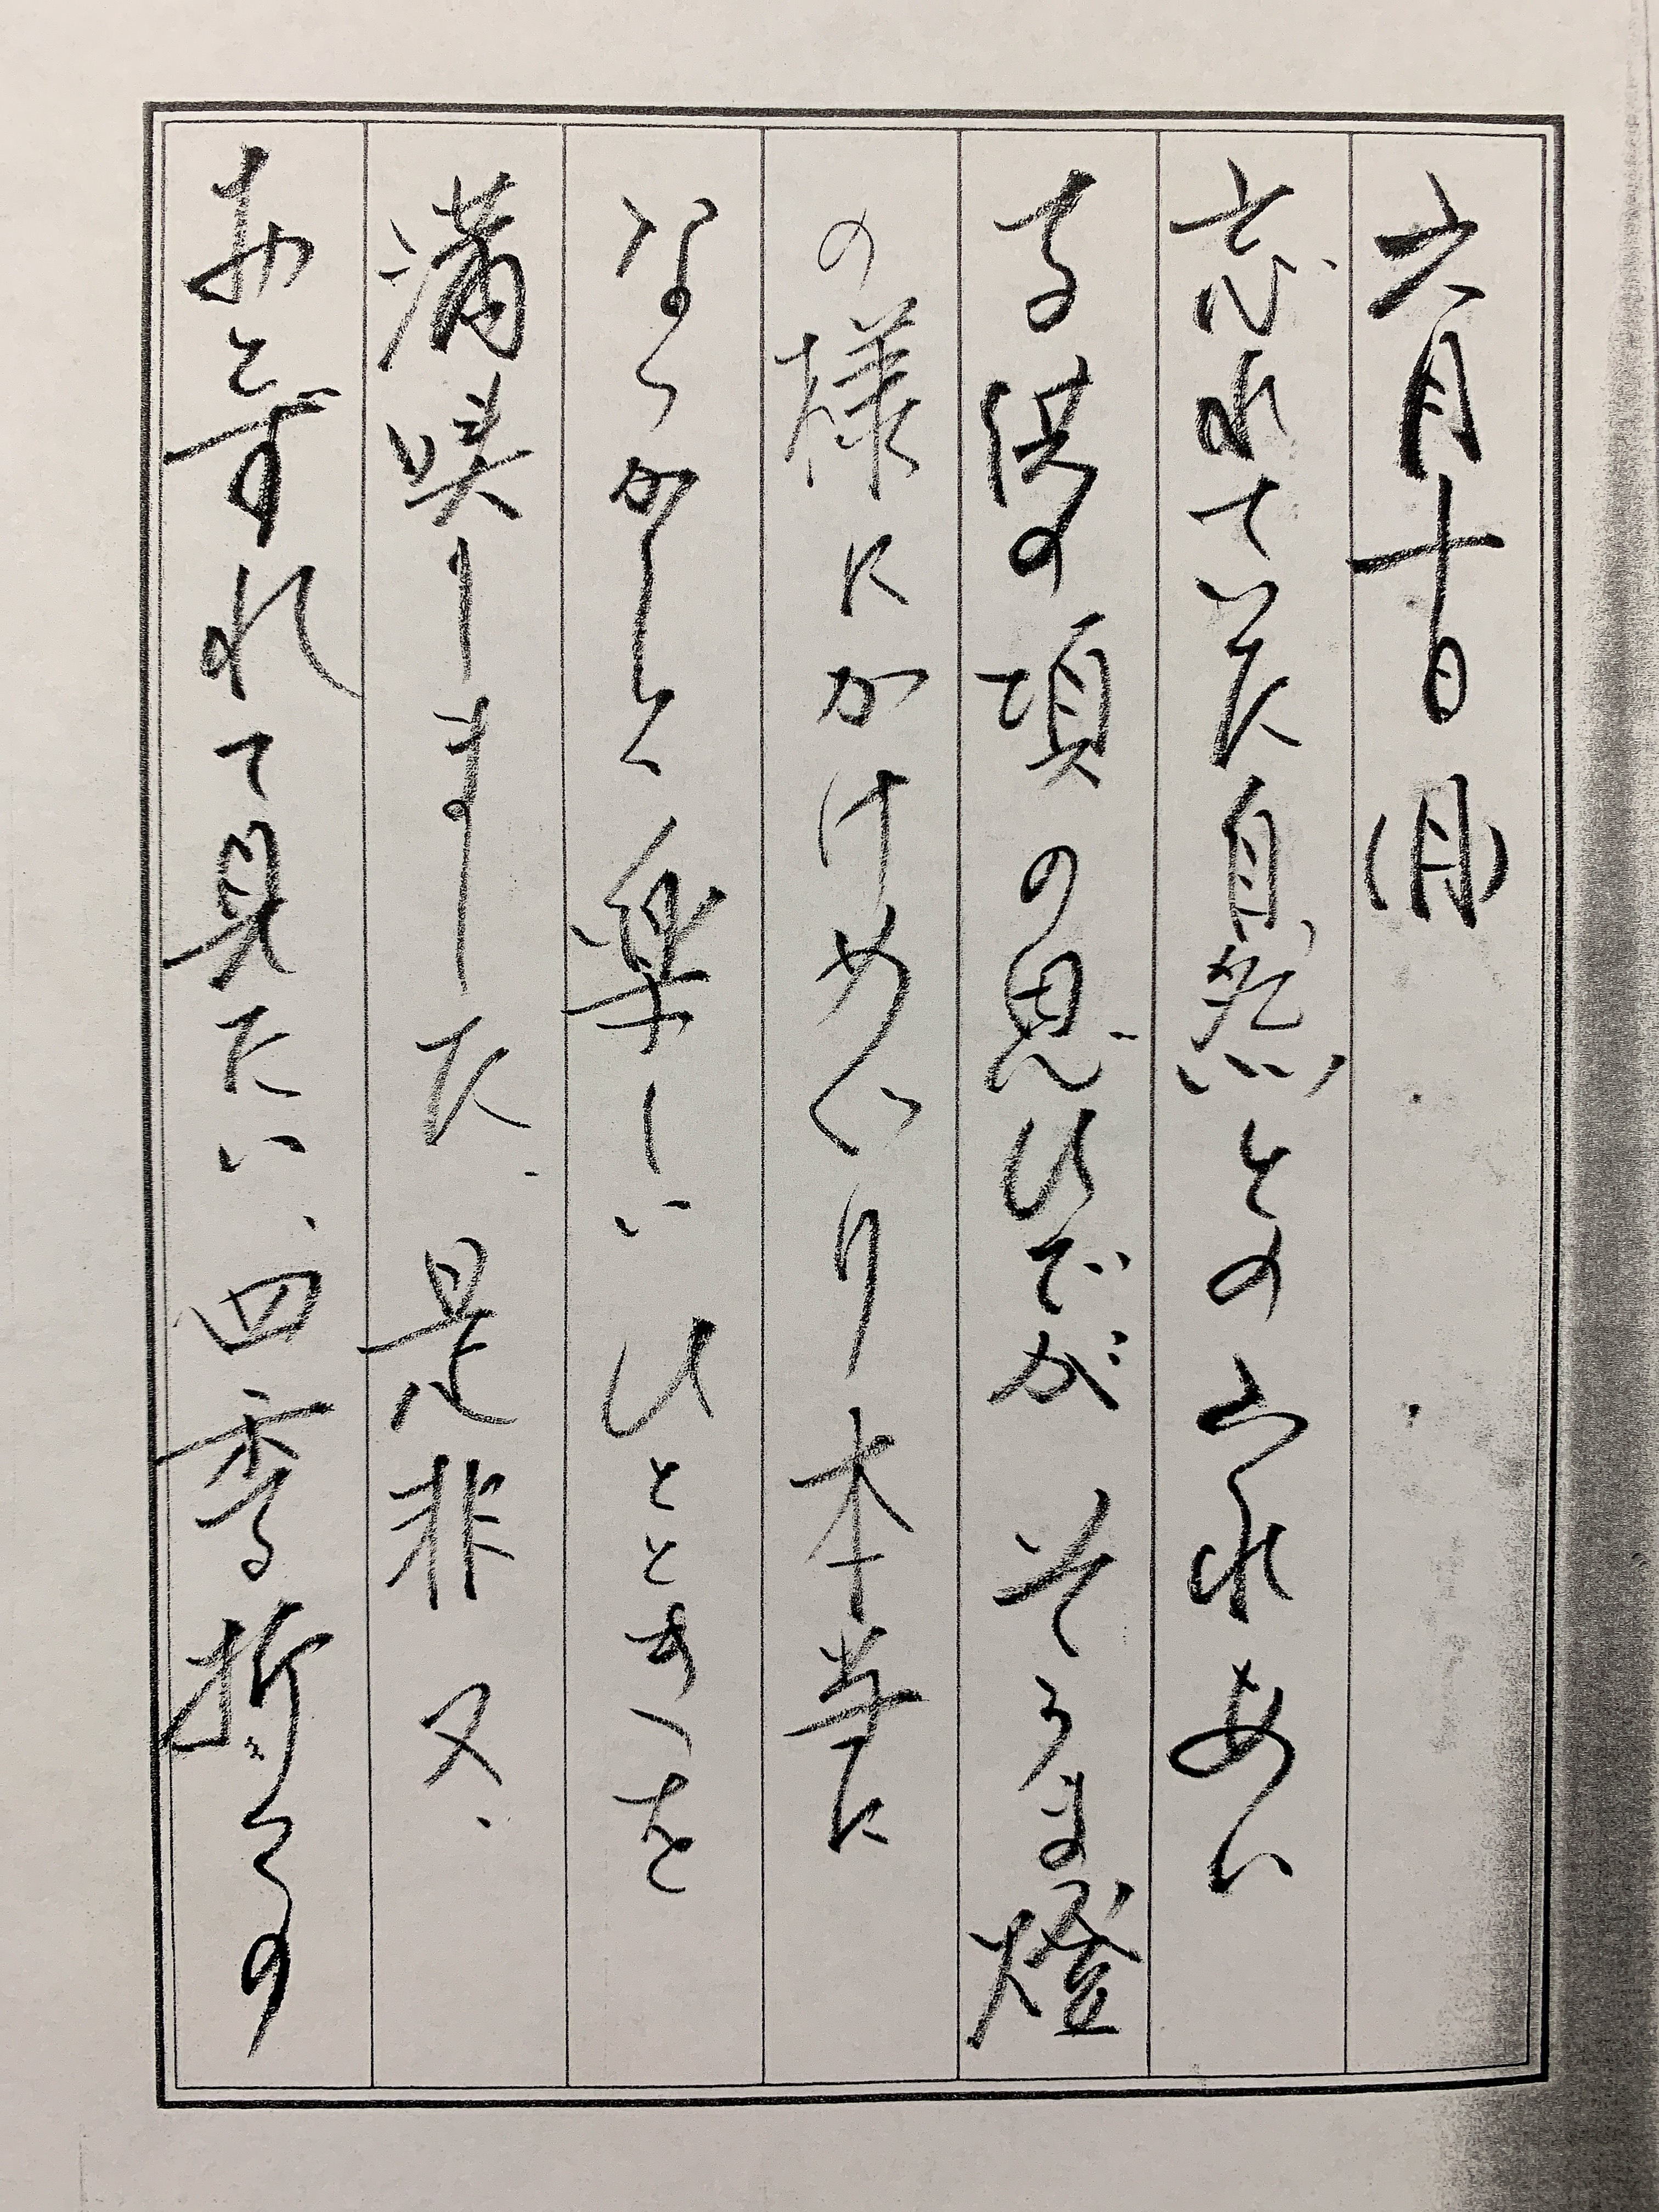 六月十日(月)
忘れていた自然とのふれあい
子供の頃の思ひでが そうま燈
の様にかけめぐり本当に
なつかしく楽しいひとときを
満喫しました、是非又、
おとずれて見たい、四季折々の